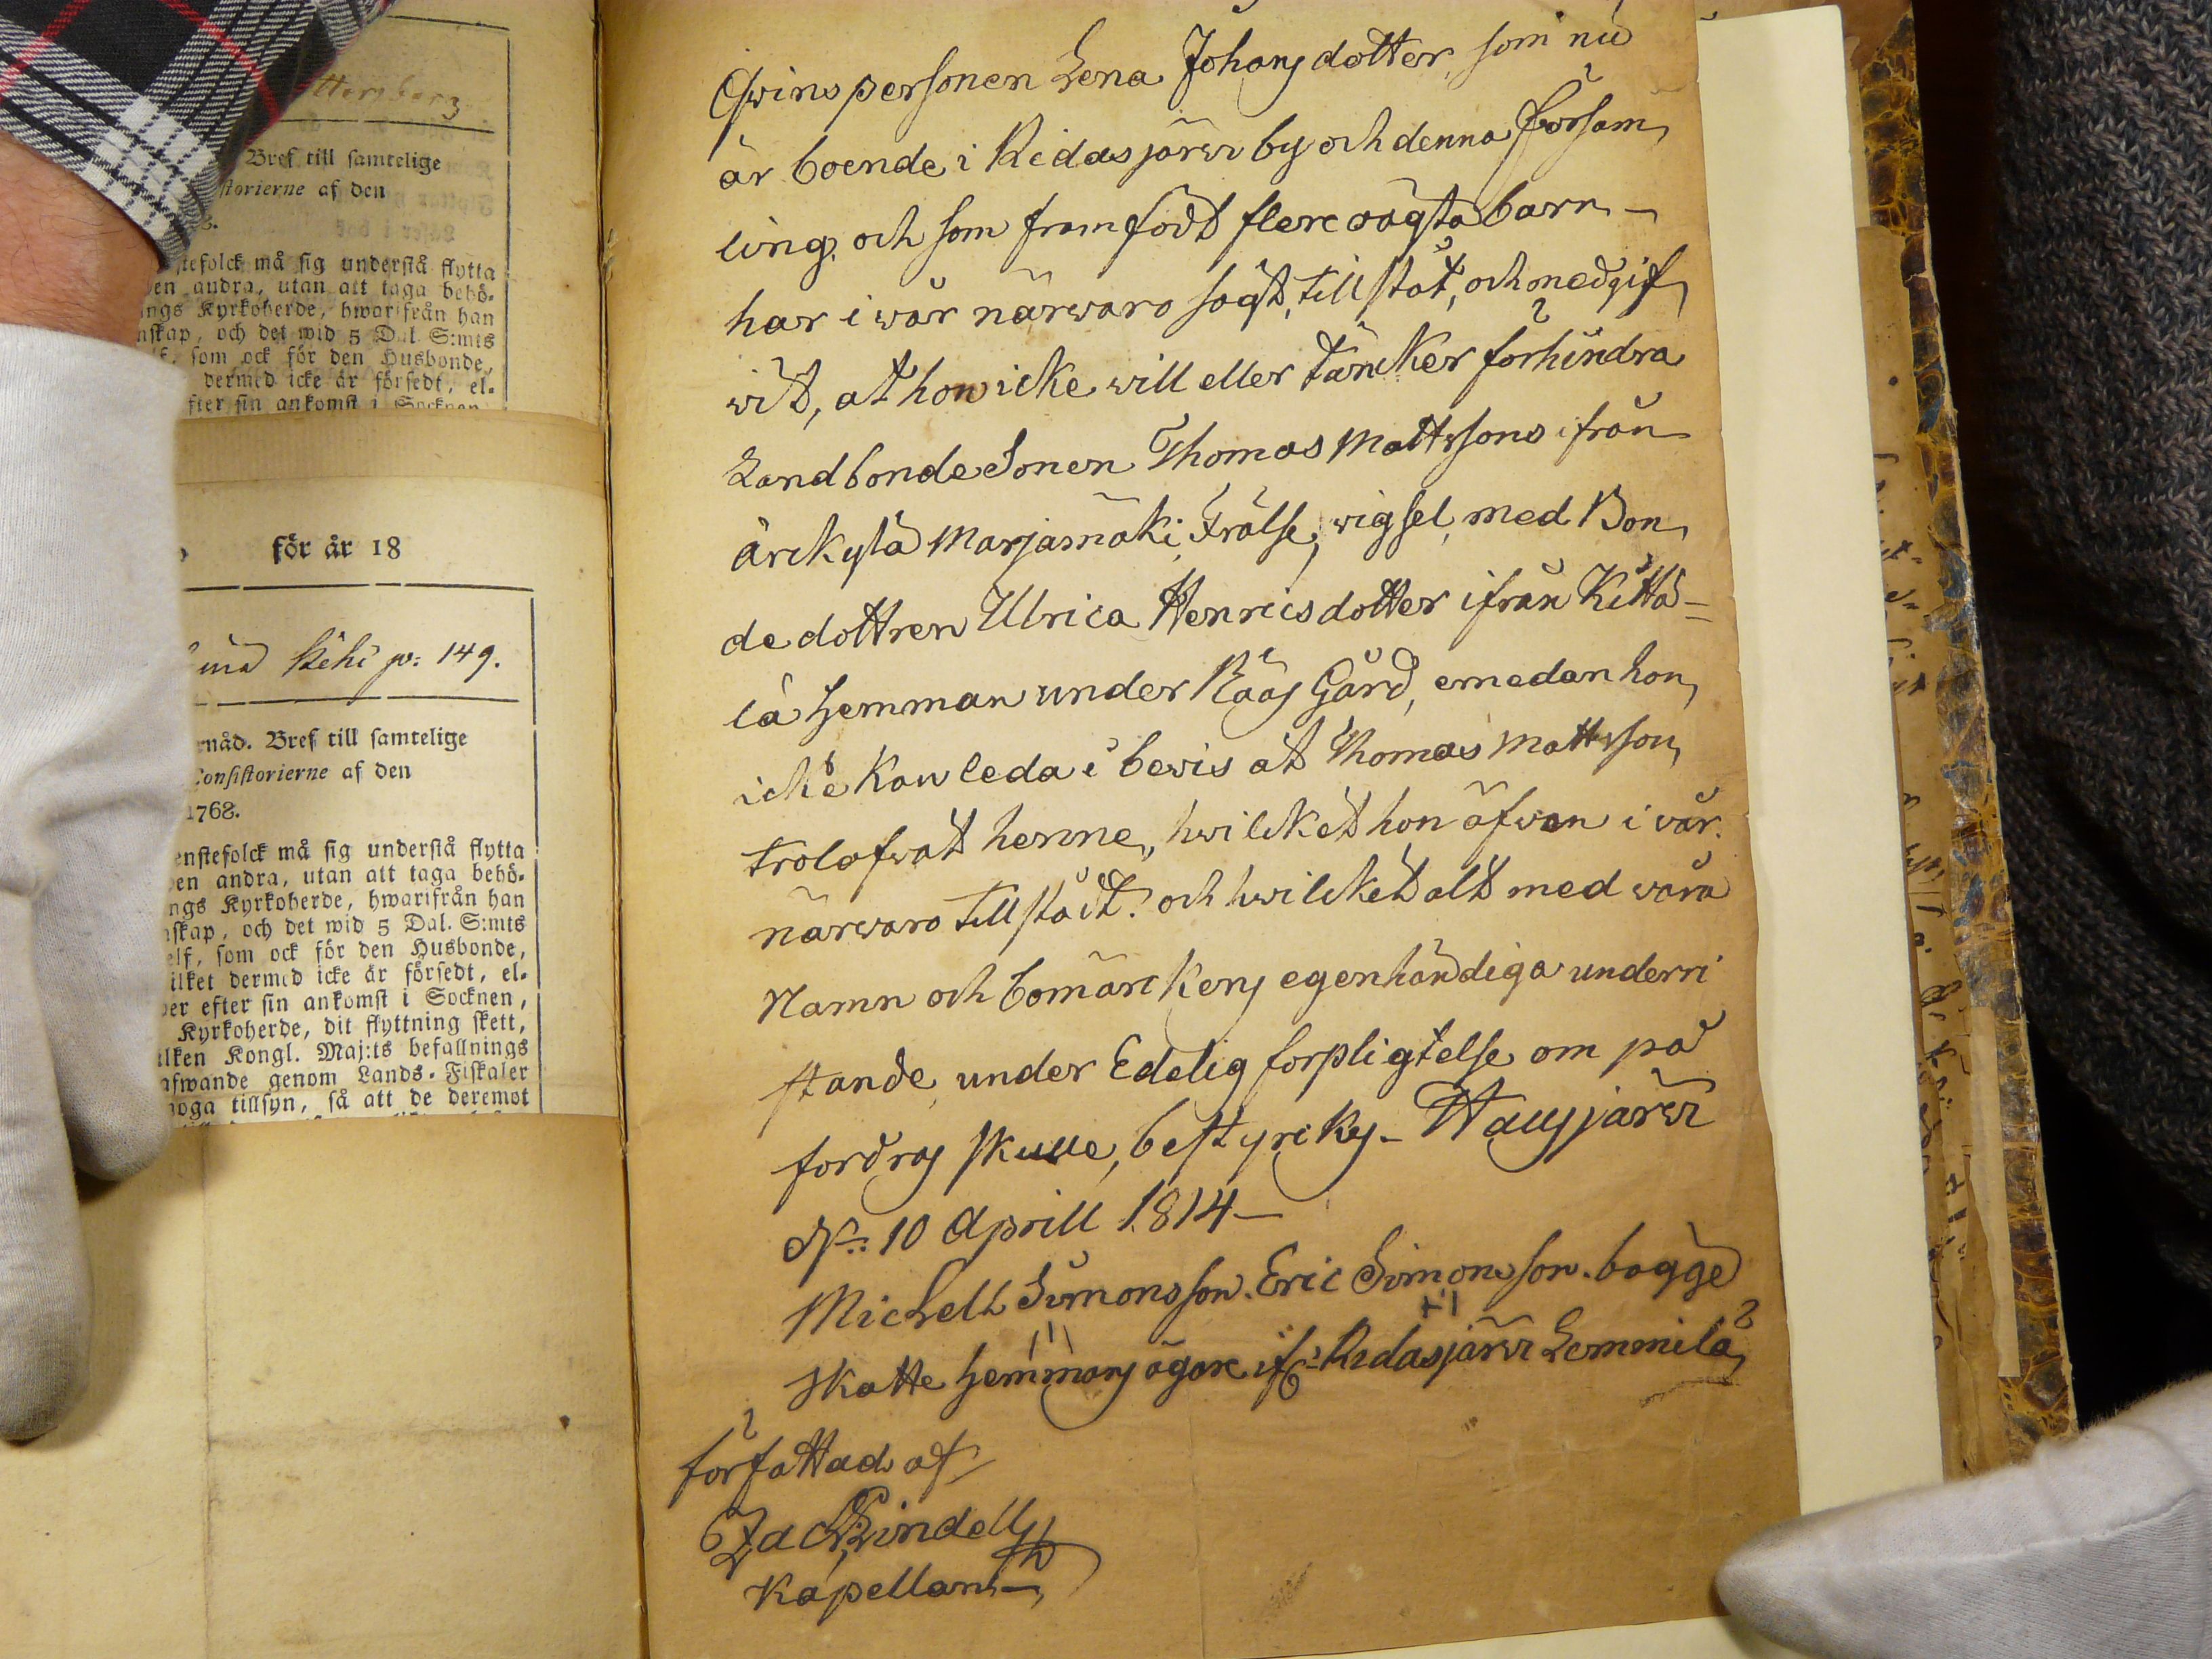 ttersberg
Bref till samtelige
storierne af den
8.
stefolck må sig understå flytta
en andra, utan att taga behö-
ngs Kyrkoherde, hwarifrån han
nskap, och det wid 5 Dal S:mts
lf, som ock för den Husbonde,
dermed icke är försedt, el-
fter sin ankomst i Socknen
för år 18
Kihi p: 149.
rnåd. Bref till samtelige
Consistorierne af den
1768.
enstefolck må sig understå flytta
en andra, utan att taga behö-
ngs Kyrkoherde, hwarifrån han
skap, och det wid 5 Dal. S:mts
elf, som ock för den Husbonde,
ilket dermed icke är försedt, el-
er efter sin ankomst i Socknen,
Kyrkoherde, dit flyttning skett,
ilken Kongl. Maj:ts befallnings
afwande genom Lands-Fiskaler
noga tillsyn, så att de deremot
Qwinspersonen Lena Johansdotter, som nu
är boende i Ridasjärwi by och denna Församb
ling, och som framfödt flere oägta barn -
har i wår närwaro sagt, tillståt, och medgif
wit, at hon icke will eller täncker förhindra
Landbonde Sonen Thomas Mattssons ifrån
ärckylä Marjamäki Frälse, wigsel, med Bon
de dottren Ulrica Henricsdotter ifrån Kittä=
lä Hemman under Näås Gård, emedan hon
icke kan leda i bewis at Thomas Mattsson
trolofwat henne, hwilcket hon äfwen i vår
närwaro tillstådt: och hwilcket alt med wåra
Namn och bomärckens egenhändiga underri
stande, under Edelig förpligtelse om på
fordras skulle, bestyrckes - Hausjärwi
d: 10 Aprill 1814 -
Michell Simonsson. Eric Simonsson. bägge
Skatte Hemmans ägare if: Ridasjärwi Lemmilä
författad af
Zach Lindell
Kapellan -